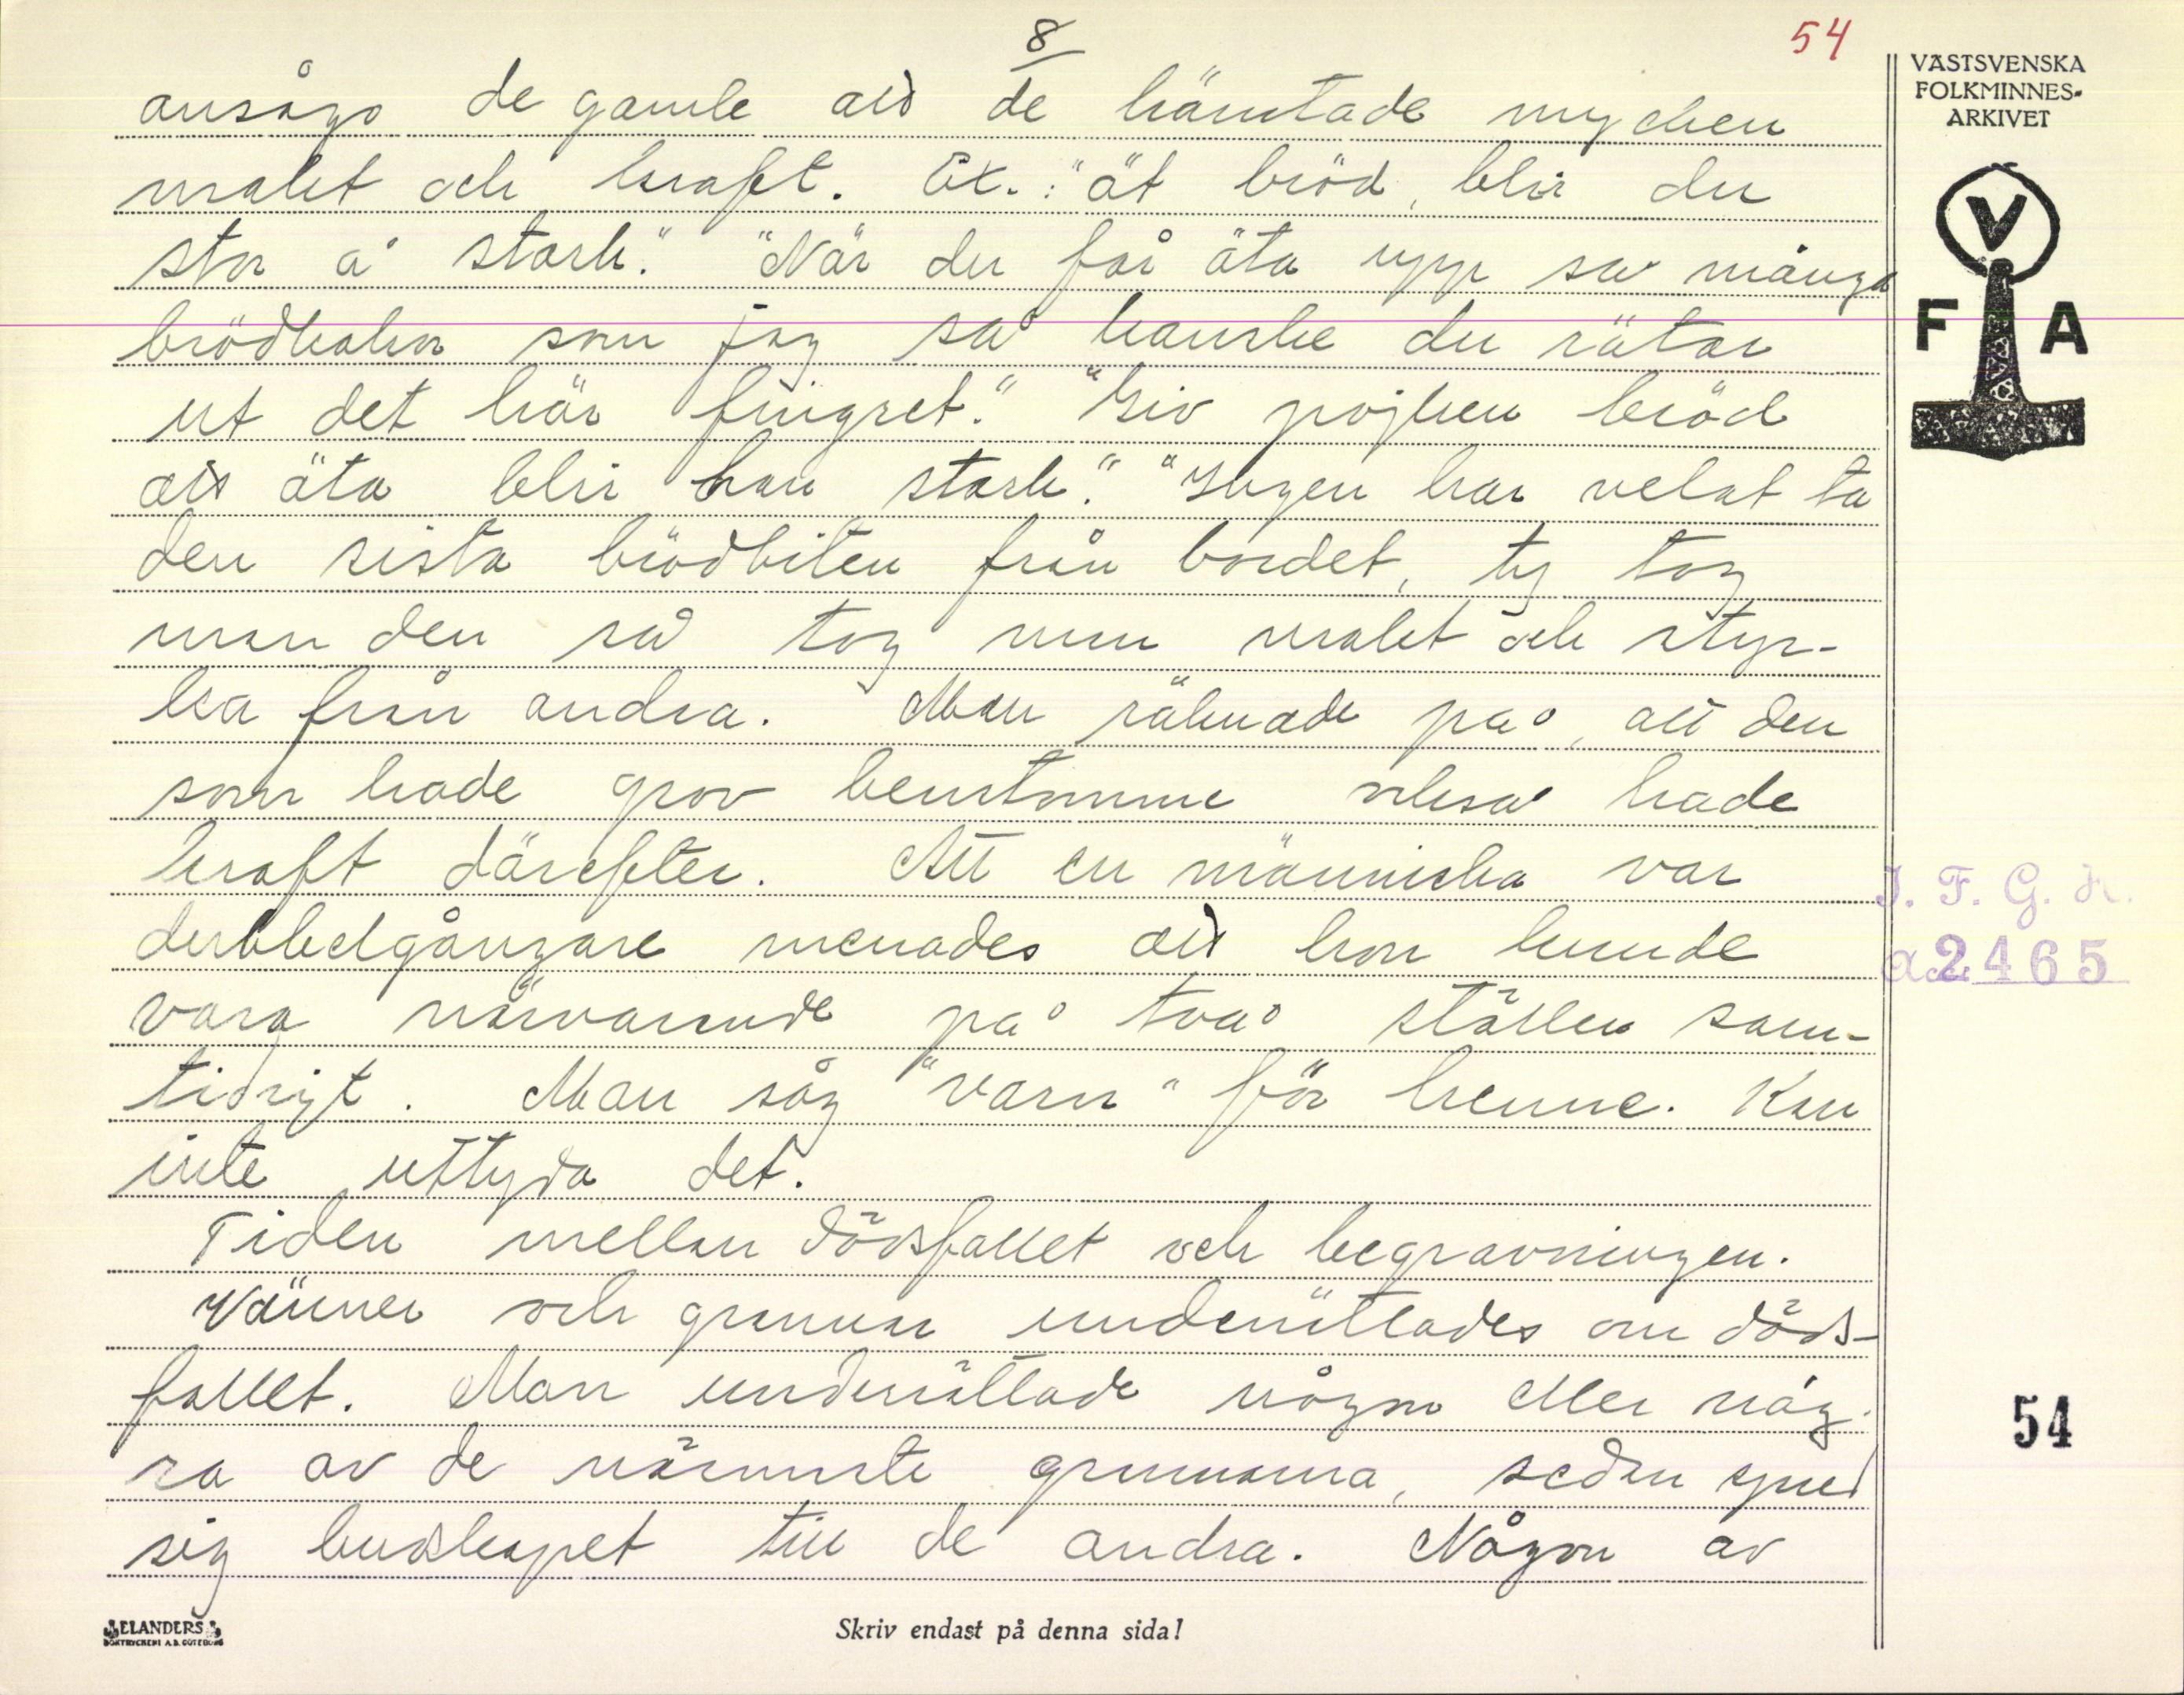 8
54
VÄSTSVENSKA
FOLKMINNES-
ARKIVET
V
F A
ansågo de gamle att de hämtade mycken
makt och kraft. Ex.: "ät bröd, blir du
stor å stark." "När du får äta upp så många
brödkakor som jag så kanske du rätar
ut det här fingret." "Giv pojken bröd
att äta blir han stark." "Ingen har velat ta
den sista brödbiten från bordet, ty tog
man den så tog man makt och styr-
ka från andra. Man räknade på, att den
som hade grov benstomme också hade
kraft därefter. Att en människa var
dubbelgångare menades att hon kunde
vara närvarande på två ställen sam-
tidigt. Man såg "varn" för henne. Kan
inte uttyda det.
Tiden mellan dödsfallet och begravningen.
Vänner och grannar underrättades om döds-
fallet. Man underrättade någon eller någ-
ra av de närmste grannarna, sedan spred
sig budskapet till de andra. Någon av
I. F. G. H.
acc. 2465
54
ELANDERS
BOKTRYCKERI A.B. GÖTEBORG
Skriv endast på denna sida!